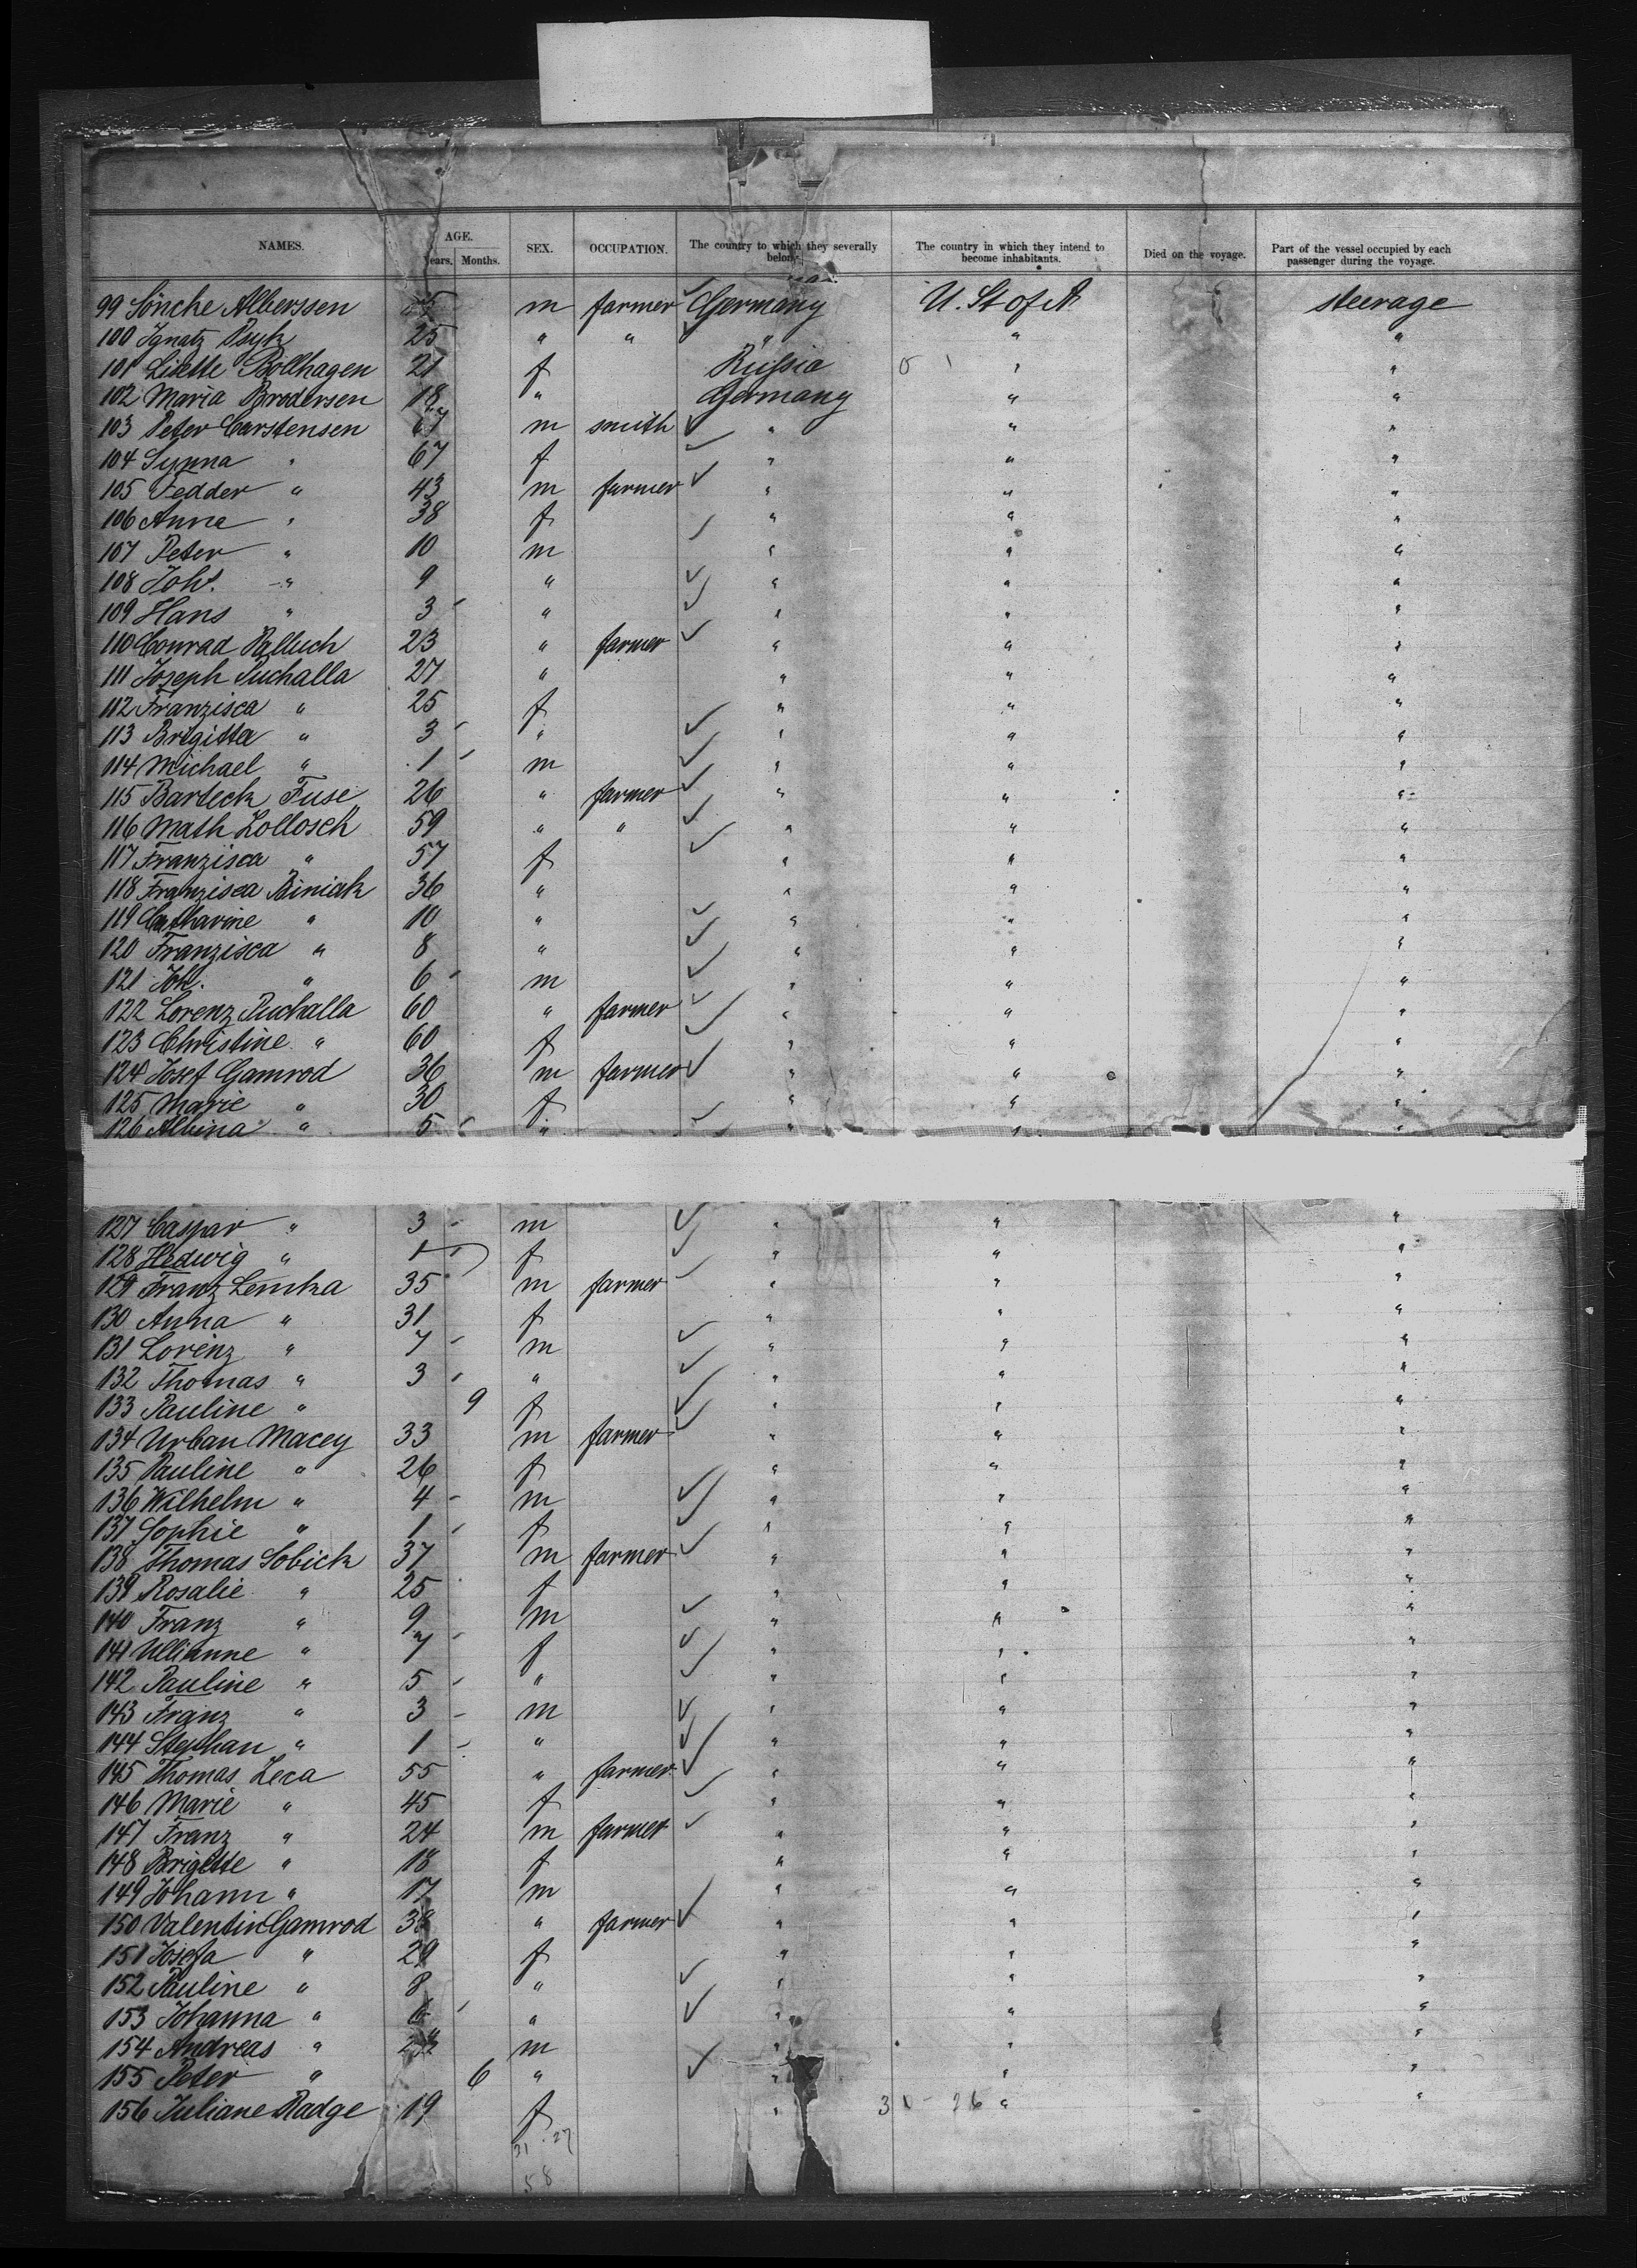 NAMES. AGE. Years. Months. SEX. OCCUPATION. The country to which they severally belong. The country in which they intend to become inhabitants. Died on the voyage. Part of the vessel occupied by each passenger during the voyage.
99 Sönche Alberssen m farmer Germany U. St of A steerage
100 Ignatz Psyk 25 " " " " "
101 Lisette Bollhagen 21 f Russia " "
102 Maria Brodersen 18 " Germany " "
103 Peter Carstensen 67 m smith " " "
104 Synna " 67 f " " "
105 Fedder " 43 m farmer " " "
106 Anna " 38 f " " "
107 Peter " 10 m " " "
108 Joh. " 9 " " " "
109 Hans " 3 " " " "
110 Conrad Palluch 23 " farmer " " "
111 Joseph Puchalla 27 " " " "
112 Franzisca " 25 f " " "
113 Brigitta " 3 " " " "
114 Michael " 1 m " " "
115 Barteck Fuse 26 " farmer " " "
116 Math Kollosch 59 " " " " "
117 Franzisca " 57 f " " "
118 Franzisca Biniak 36 " " " "
119 Catharine " 10 " " " "
120 Franzisca " 8 " " " "
121 Joh. " 6 m " " "
122 Lorenz Puchalla 60 " farmer " " "
123 Christine " 60 f " " "
124 Josef Gamrod 36 m farmer " " "
125 Marie " 30 f " " "
126 Albina " 5 " " " "
127 Caspar " 3 m " " "
128 Hedwig " 1 f " " "
129 Franz Lemka 35 m farmer " " "
130 Anna " 31 f " " "
131 Lorenz " 7 m " " "
132 Thomas " 3 " " " "
133 Pauline " 9 f " " "
134 Urban Macey 33 m farmer " " "
135 Pauline " 26 f " " "
136 Wilhelm " 4 m " " "
137 Sophie " 1 f " " "
138 Thomas Sobich 37 m farmer " " "
139 Rosalie " 25 f " " "
140 Franz " 9 m " " "
141 Ullianne " 7 f " " "
142 Pauline " 5 " " " "
143 Franz " 3 m " " "
144 Stephan " 1 " " " "
145 Thomas Zeca 55 " farmer " " "
146 Marie " 45 f " " "
147 Franz " 24 m farmer " " "
148 Brigette " 18 f " " "
149 Johann " 17 m " " "
150 Valentin Gamrod 38 " farmer " " "
151 Josefa " 29 f " " "
152 Pauline " 8 " " " "
153 Johanna " 6 " " " "
154 Andreas " m " " "
155 Peter " 6 " " " "
156 Juliane Radge 19 f " 30 - 26 " "
31 - 27
58